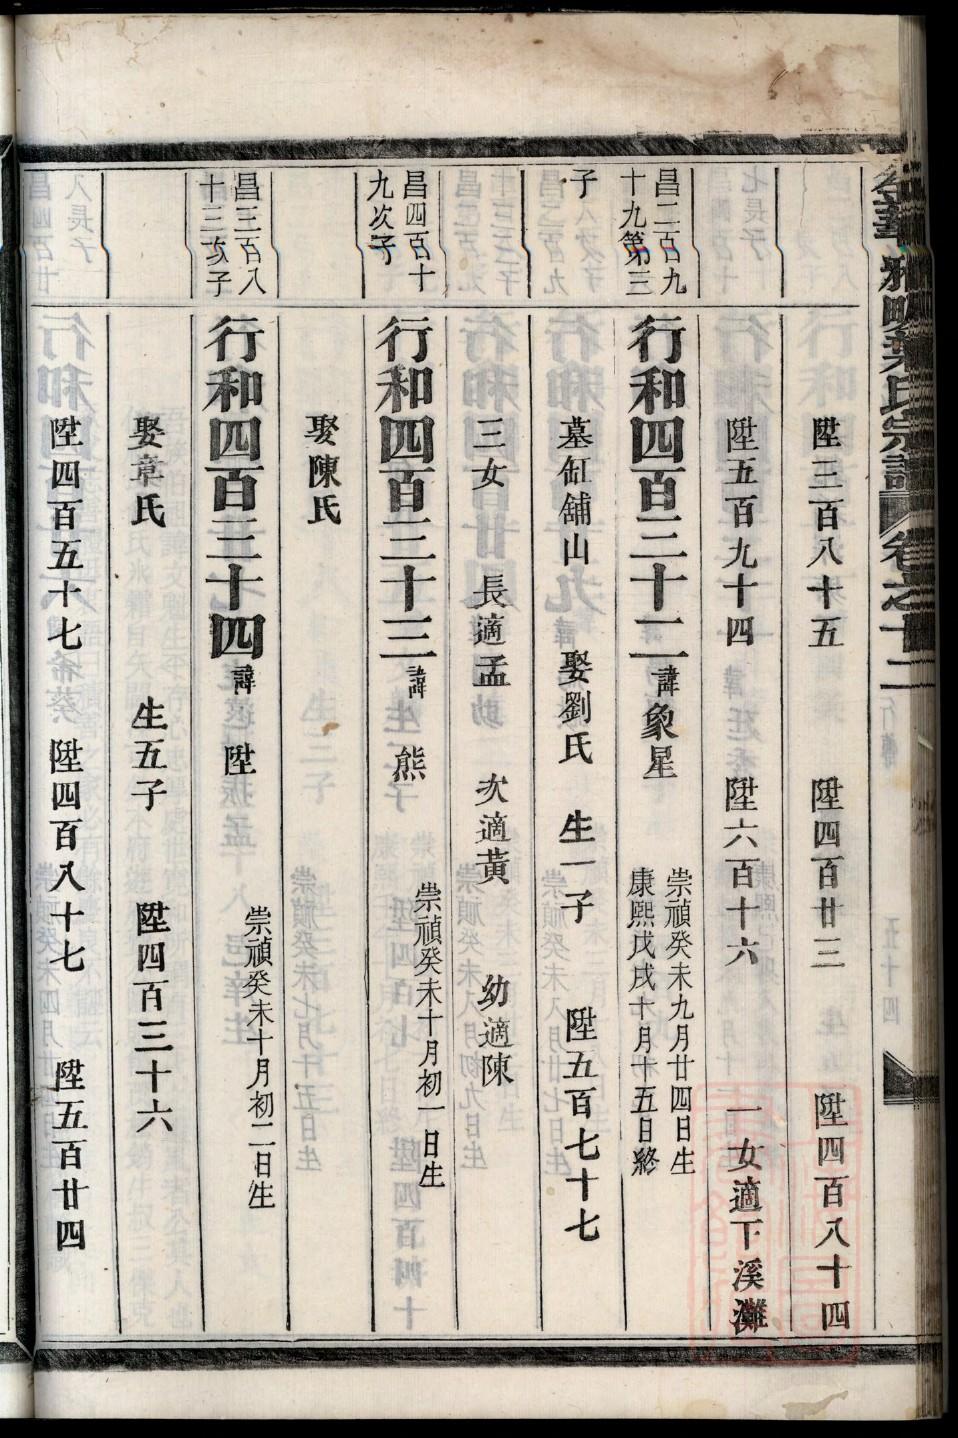 陞三百八十五　陞四百廿三　陞四百八十四
陞五百九十四　陞六百十六　一女適下溪灘
昌二百九
十九第三
行和四百三十二諱象星
崇禎癸未九月廿四日生
康熙戊戌十月十五日終
子
墓缸舖山　娶劉氏　生一子　陞五百七十七
三女　長適孟　次適黃　幼適陳
昌四百十
九次子
行和四百三十三諱熊
崇禎癸未十月初一日生
娶陳氏
昌三百八
十三次子
行和四百三十四諱陞
崇禎癸未十月初二日生
娶章氏　生五子　陞四百三十六
陞四百五十七　陞四百八十七　陞五百廿四